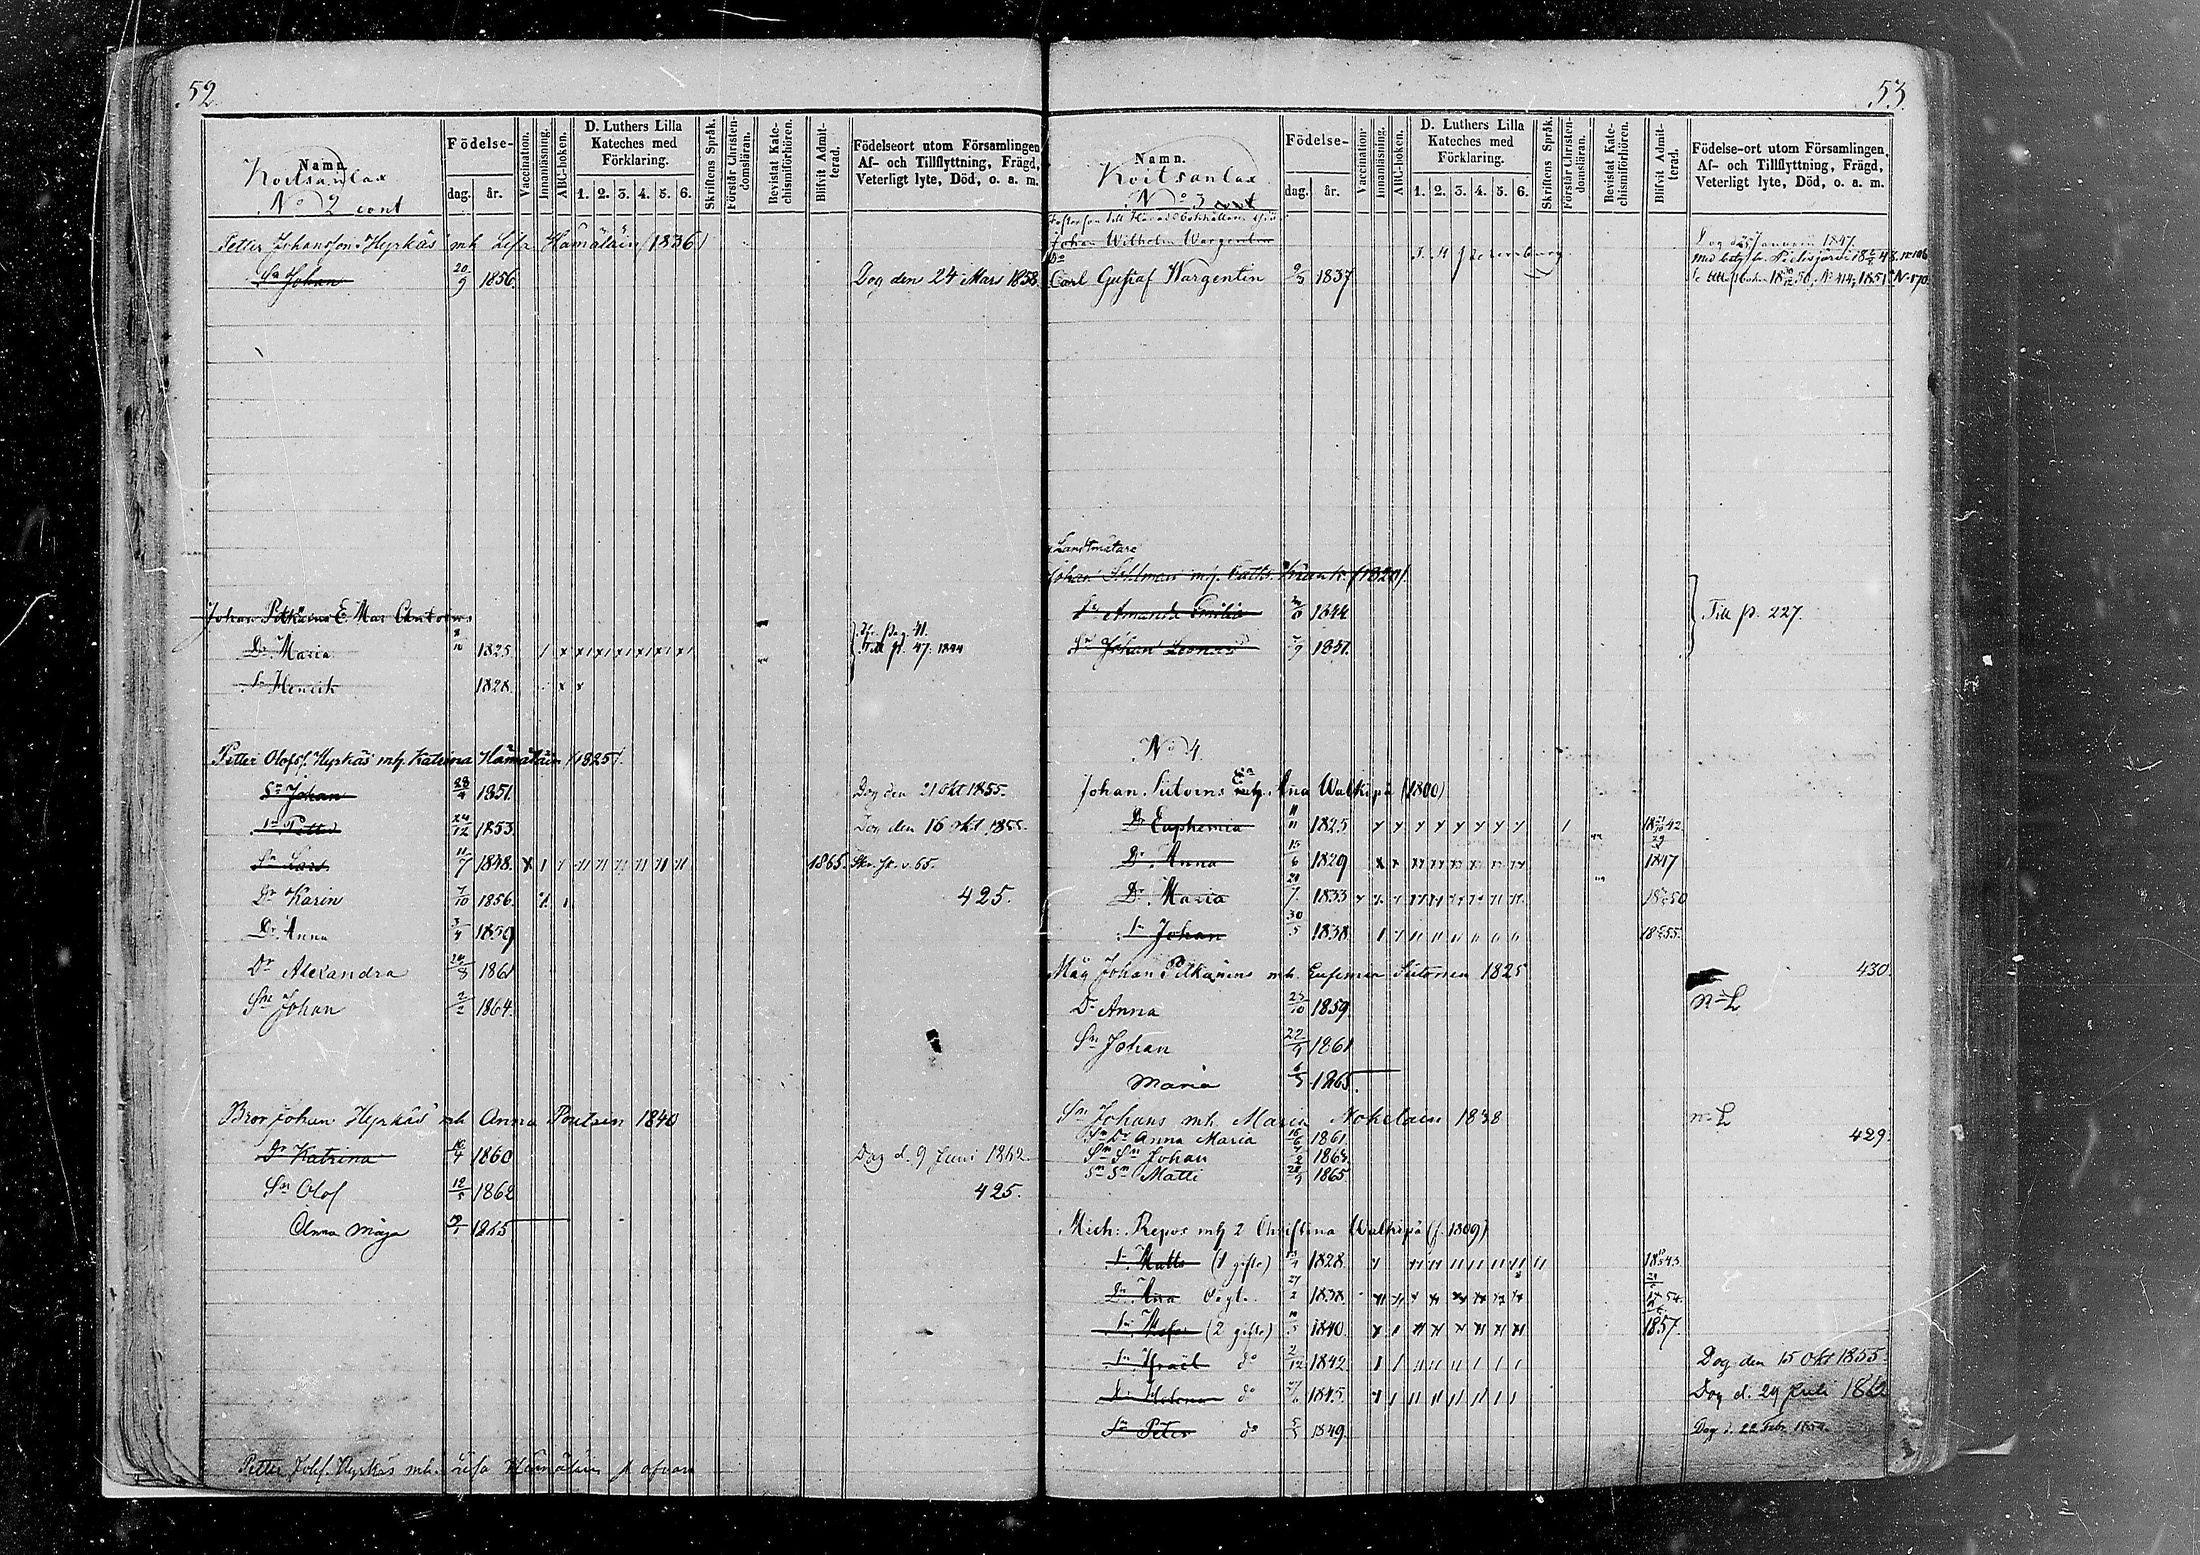 52
Namn.
Koitsanlax
No 2 cont
Födelse-
dag. år.
Vaccination.
Innanläsning.
ABC-boken.
D. Luthers Lilla
Kateches med
Förklaring.
1. 2. 3. 4. 5. 6.
Skriftens Språk.
Förstår Christen-
domsläran.
Bevistat Kate-
chismiförhören.
Blifvit Admit-
terad.
Födelseort utom Församlingen
Af- och Tillflyttning, Frägd,
Veterligt lyte, Död, o. a. m.
Petter Johansson Hyrkäs mh Lisa Hämäläin (1836)
Sn Johan 20/9 1856 Dog den 24 Mars 1858
Johan Pitkäins E. Mar Antoins
Dr Maria 1825 Till p. 47. 1844
Sn Henrik 1828
Petter Olofss. Hyrkäs mh Katrina Hämäläin (1825)
Sn Johan 28/4 1851 Dog den 21 Okt 1855.
Sn Petter 24/12 1853 Dog den 16 Okt 1855.
Sn Lars 11/7 1848 1865.
Dr Karin 7/10 1856. 425.
Dr Anna 3/4 1859
Dr Alexandra 24/8 1861
Sn Johan 2/2 1864
Bror Johan Hyrkäs mh Anna Poutain 1840
Dr Katrina 10/4 1860 Dog d. 9 Juni 1862
Sn Olof 12/5 1862 425.
Anna Maja 1865
Petter Johss. Hyrkäs mh Lisa Hämäläin se ofvan
53
Namn.
Koitsanlax
No 3 cont
Födelse-
dag. år.
Vaccination.
Innanläsning.
ABC-boken.
D. Luthers Lilla
Kateches med
Förklaring.
1. 2. 3. 4. 5. 6.
Skriftens Språk.
Förstår Christen-
domsläran.
Bevistat Kate-
chismiförhören.
Blifvit Admit-
terad.
Födelse-ort utom Församlingen,
Af- och Tillflyttning, Frägd,
Veterligt lyte, Död, o. a. m.
Johan Wilhelm Wargentin Januari 1847.
Do
Carl Gustaf Wargentin 1837
Landtmätare
Johan Sohlman mh Cath. Krank (1820)
Dr Amanda Emilia 1844 Till p. 227.
Sn Johan Leonard 1851.
No 4
Johan Siitoins Ea Ana Walkipä (1800)
Dr Euphemia 11/11 1825 42
Dr Anna 15/6 1829 1847
Dr Maria 20/7 1833 50
Sn Johan 30/5 1838 55
Måg Johan Pitkänens mh Eufemia Siitonen 1825 430.
Dr Anna 23/10 1859
Sn Johan 22/9 1861
Maria 1865
Sn Johans mh Maria Nokelain 1838
429.
Sn Dr Anna Maria 1861
Sn Sn Johan 1863
Sn Sn Matti 1865
Mich: Repos mh 2 Christina Walkipä (f. 1809)
Sn Matts (1 gifte) 1828
Dr Ana 1838 54.
Sn (2 gifte) 1840 1857.
Sn Israël do 2/12 1842 Dog den 15 Okt 1855
Dr Helena do 1845 Dog d. 29 Juli 1862
Sn Peter do 1849 Dog d. 22 Febr.